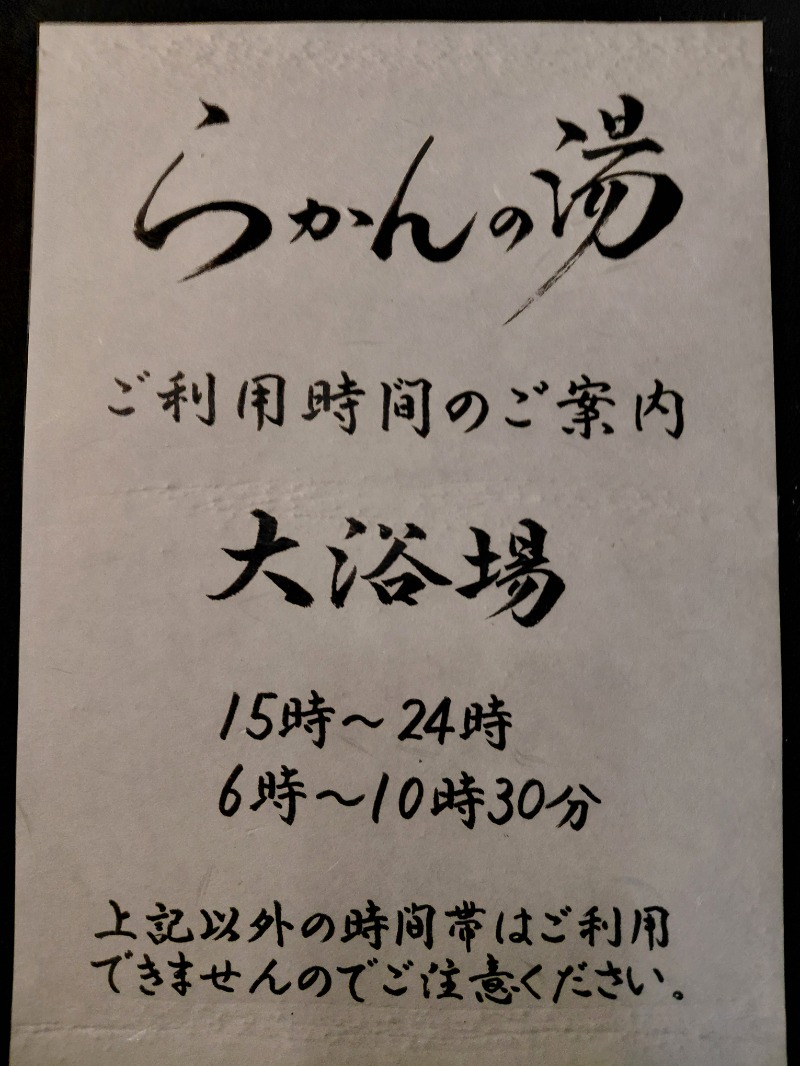 らかんの湯
ご利用時間のご案内
大浴場
15時～24時
6時～10時30分
上記以外の時間帯はご利用
できませんのでご注意ください。